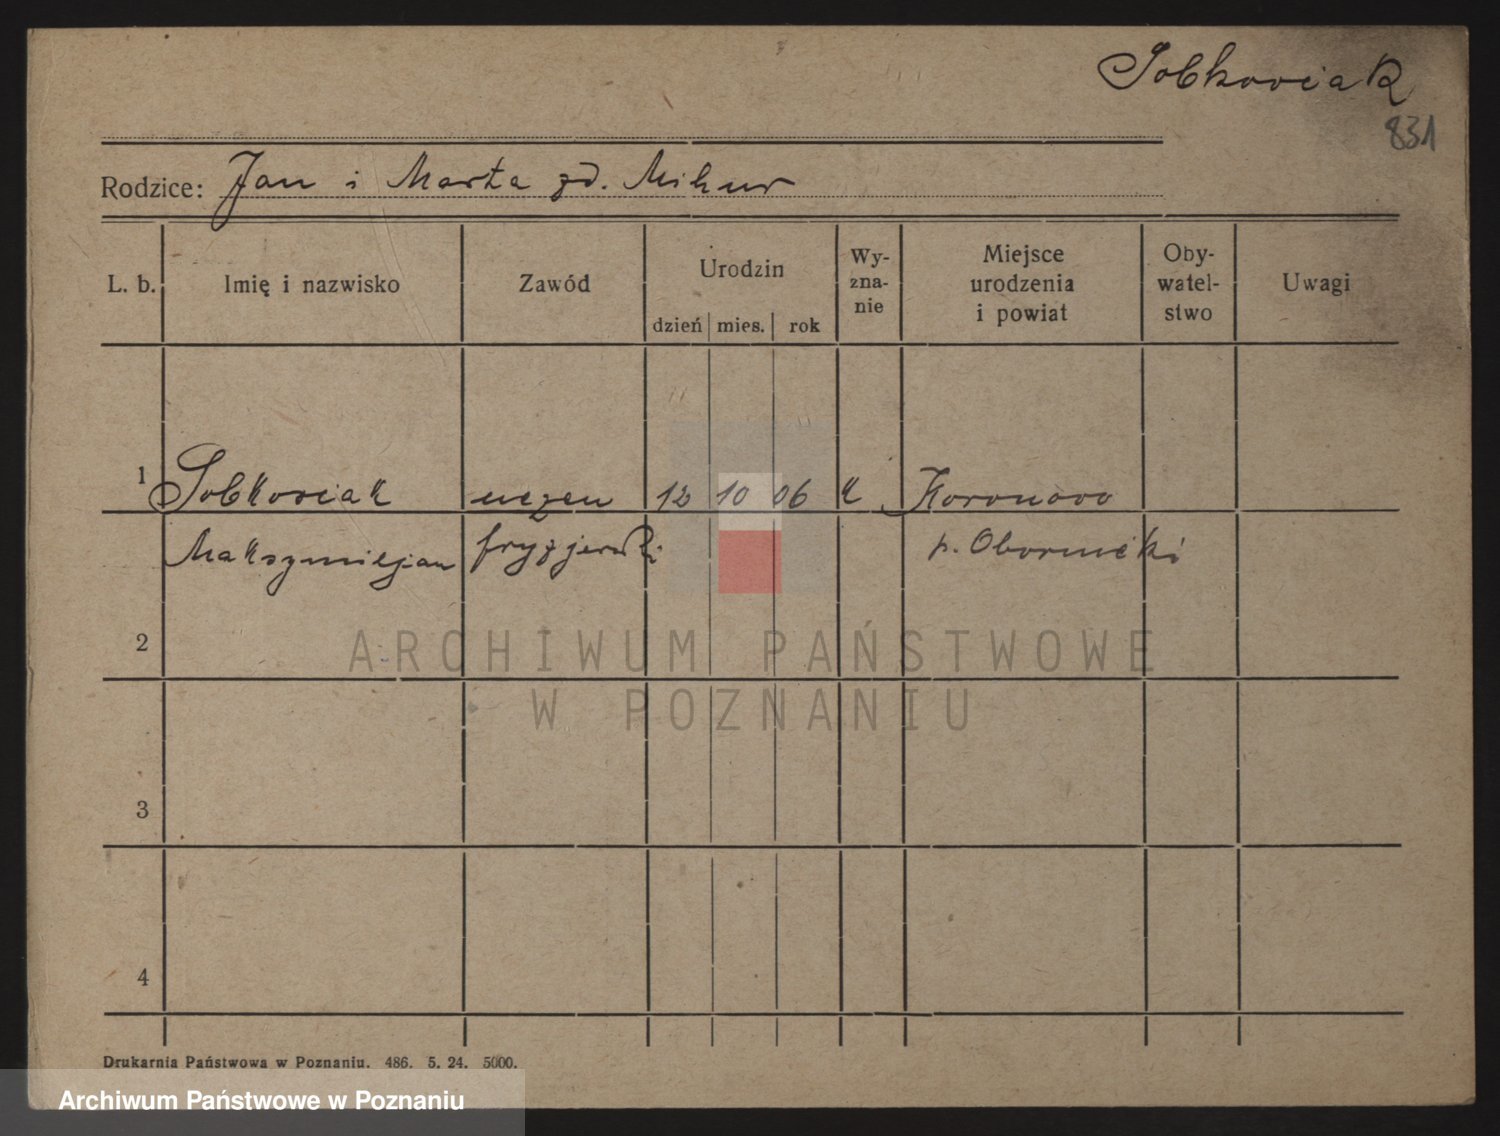 Sobkowiak
831
Rodzice: Jan i Marta zd. Mikur
L. b. Imię i nazwisko Zawód Urodzin dzień mies. rok Wy-zna-nie Miejsce urodzenia i powiat Oby-watel-stwo Uwagi
1 Sobkowiak uczen 12 10 06 k Koronowo
Maksymiljan fryzjerski p. Obornicki
2
ARCHIWUM PAŃSTWOWE
W POZNANIU
3
4
Drukarnia Państwowa w Poznaniu. 486. 5. 24. 5000.
Archiwum Państwowe w Poznaniu